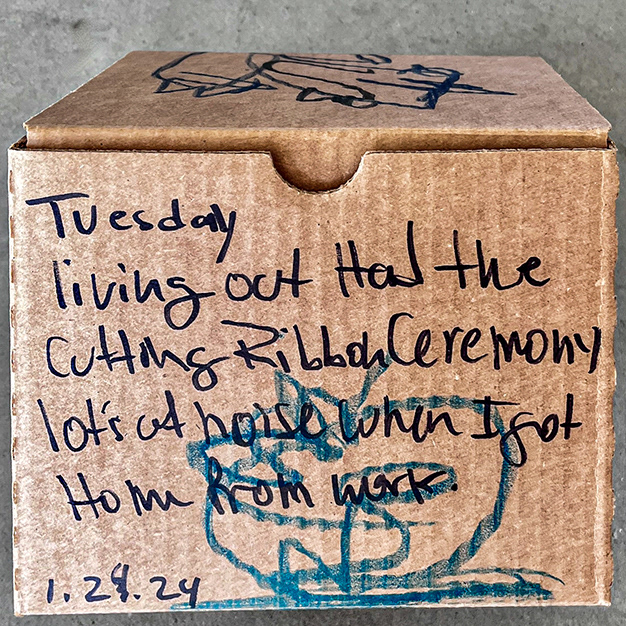 Tuesday
living out Had the
cutting Ribbon Ceremony
lot's of noise when I got
Home from work.
1.29.24